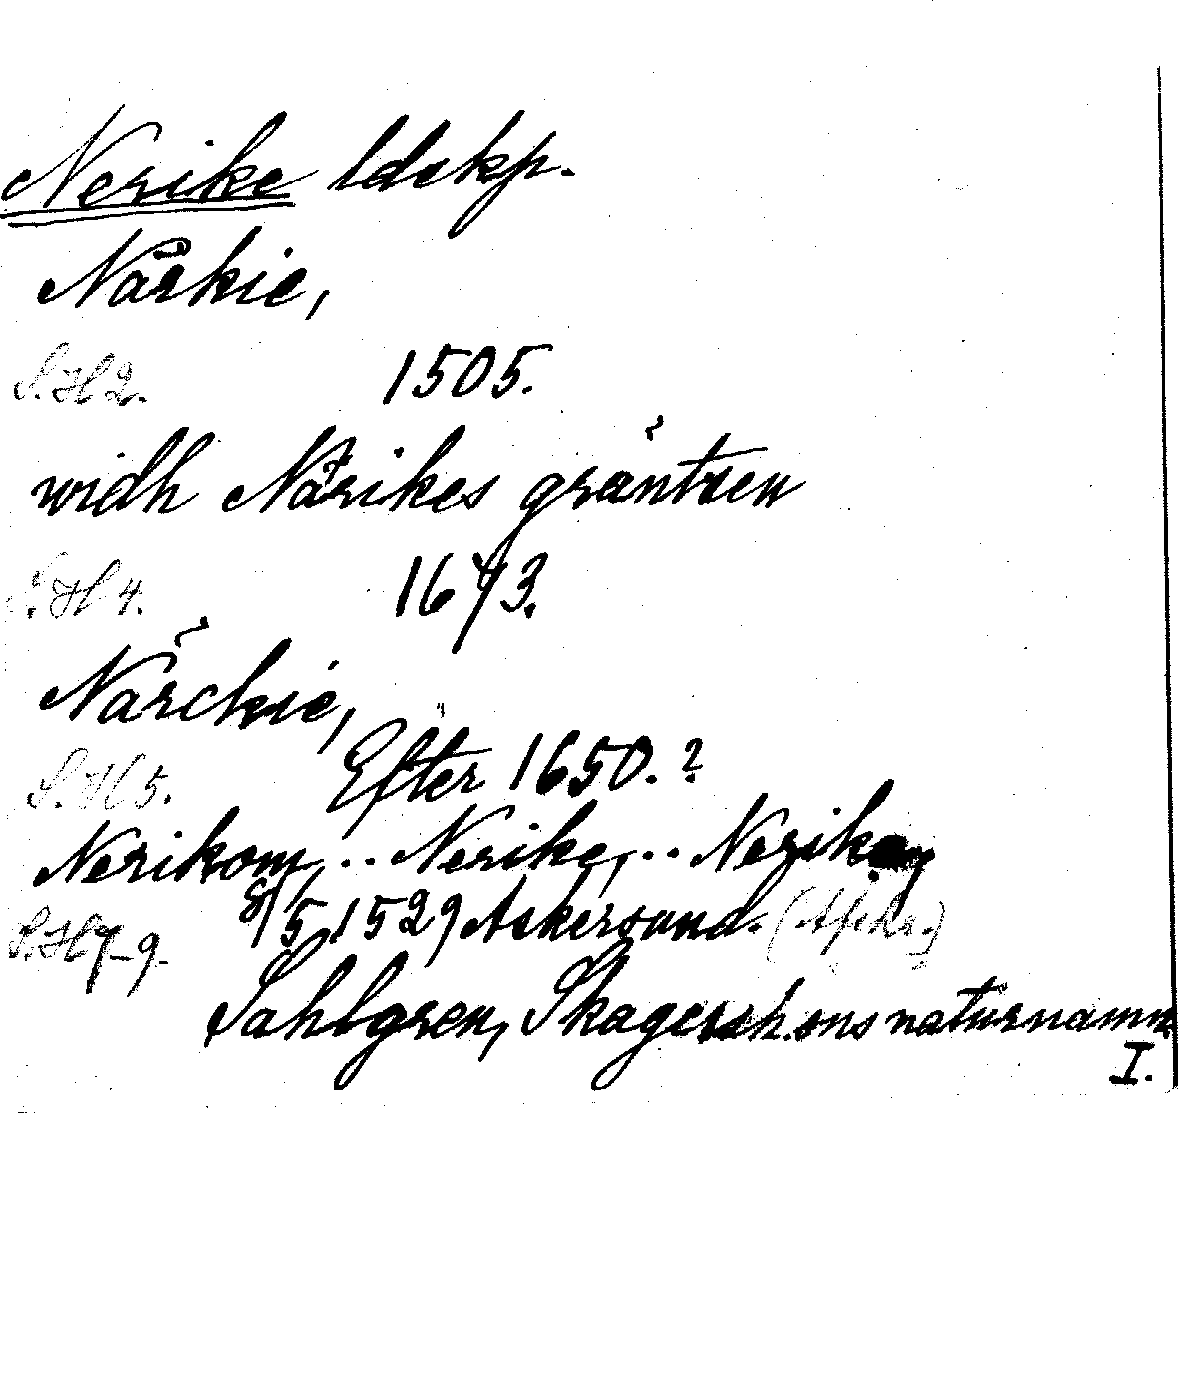 Nerike ldskp.
Närkie,
S. H 2. 1505.
widh Närikes gräntsen
S. H 4. 1673.
Närckie,
S. H 5. Efter 1650.?
Nerikom, .. Nerike, .. Nerike
S. H 7-9. 8/5 1529 Askersund. (Afskr.)
Sahlgren, Skagersh.ons naturnamn
I.